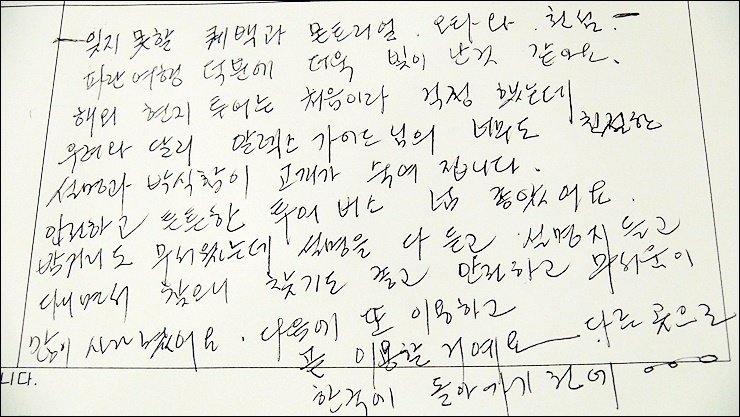 - 잊지 못할 퀘벡과 몬트리얼. 오타와. 천섬. -
파란여행 덕분에 더욱 빛이 난것 같아요.
해외 현지 투어는 처음이라 걱정 했는데
우려와 달리 알렉스 가이드님의 너무도 친절한
설명과 박식함이 고개가 숙여 집니다.
안전하고 튼튼한 투어 버스 넘 좋았어요.
밤거리도 무서웠는데 설명을 다 듣고 설명지 들고
다니면서 찾으니 찾기도 좋고 안전하고 무서움이
많이 사라졌어요. 다음에 또 이용하고
곧 이용할 거예요 다른 곳으로
한국에 돌아가기 전에 ooo
니다.